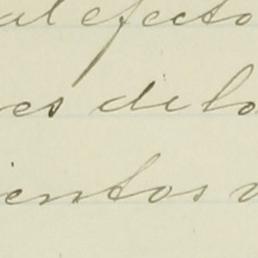 al efecto
es de lo
ientos